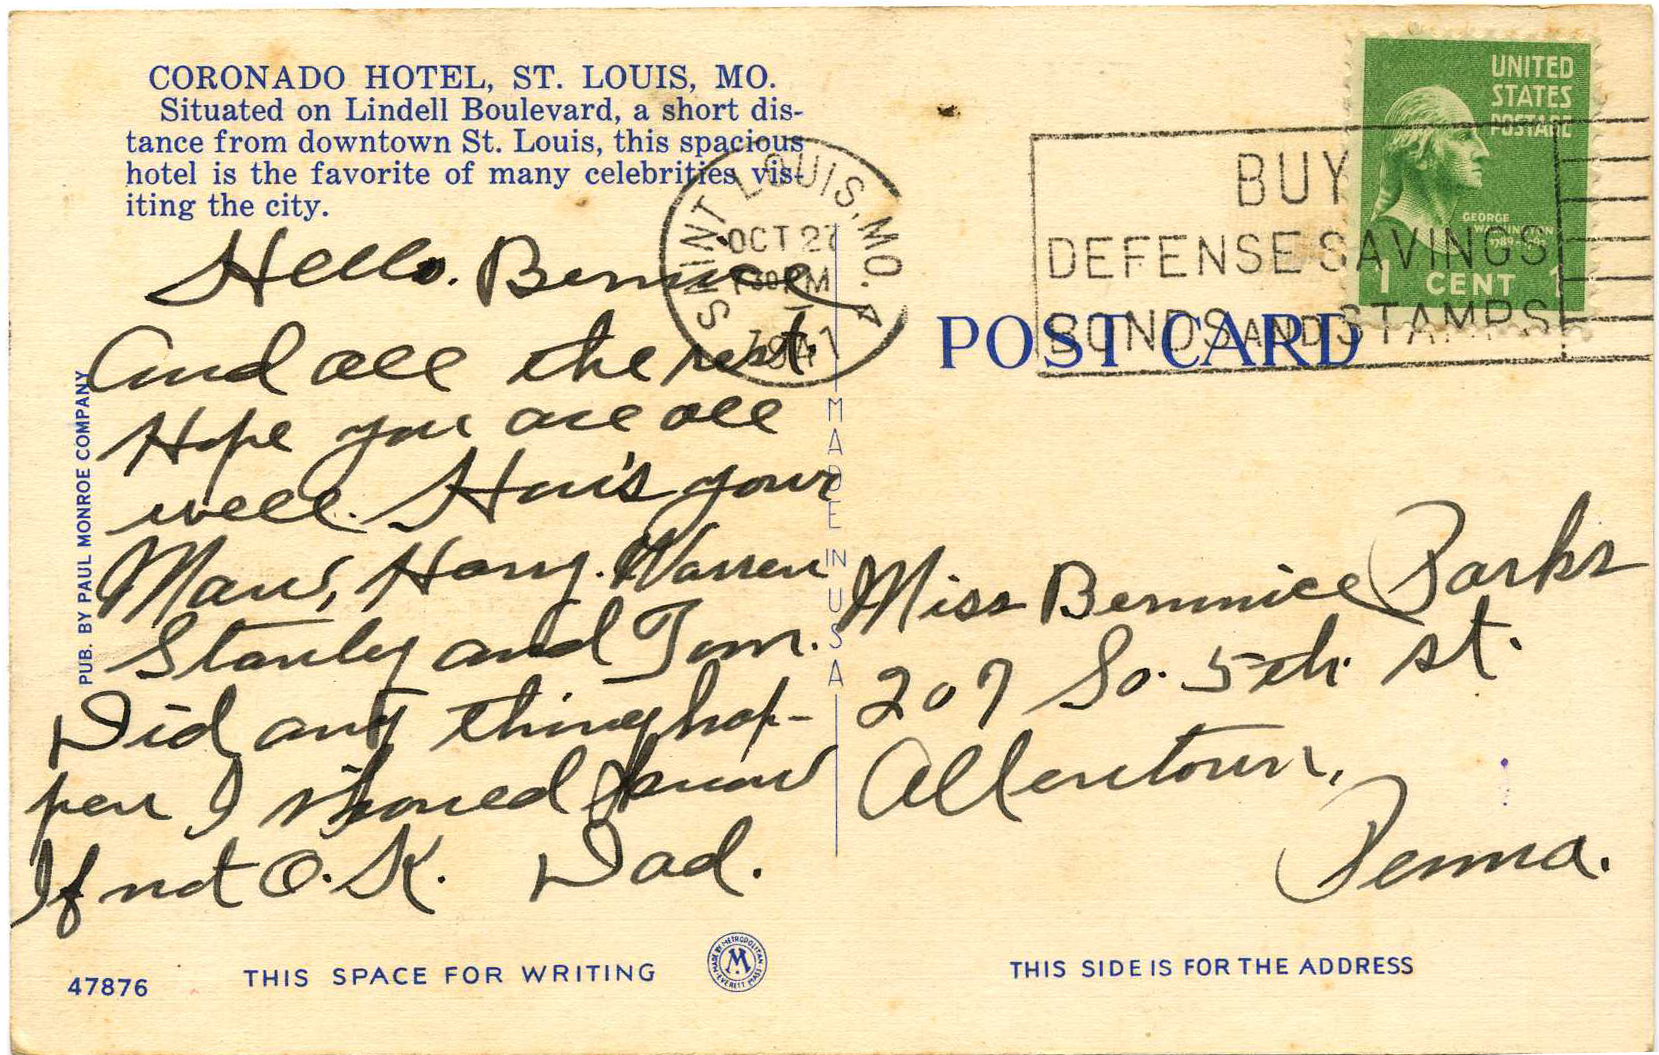 CORONADO HOTEL, ST. LOUIS, MO.
Situated on Lindell Boulevard, a short dis-
tance from downtown St. Louis, this spacious
hotel is the favorite of many celebrities vis-
iting the city.
Hello. Bernice
And all the rest.
Hope you are all
well. How's your
Maw, Harry. Warren
Stanley and Tom.
Did any thing hap-
pen I should know
If not O.K. Dad.
PUB. BY PAUL MONROE COMPANY
47876
THIS SPACE FOR WRITING
MADE BY METROPOLITAN
M
EVERETT MASS
MADE IN USA
SAINT LOUIS, MO.
OCT 27
30 PM
1941
BUY
DEFENSE SAVINGS
BONDS AND STAMPS
UNITED
STATES
POSTAGE
GEORGE
WASHINGTON
1789-1797
1 CENT 1
POST CARD
Miss Bernice Parks
207 So. 5th. st.
Allentown,
Penna.
THIS SIDE IS FOR THE ADDRESS